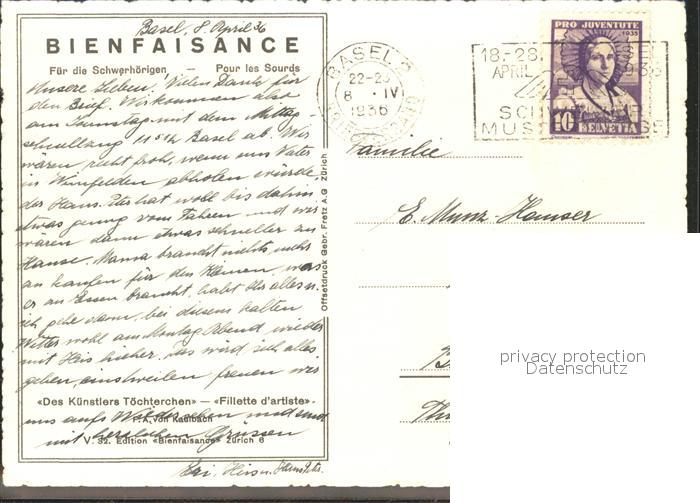 Basel, 8. April 36
BIENFAISANCE
Für die Schwerhörigen — Pour les Sourds
Unsere Lieben. Vielen Dank für
den Brief. Wir kommen also
am Sonntag mit dem Mittag-
schnellzug Basel ab. Wir
wären recht froh, wenn uns Vater
in Weinfelden abholen würde,
der Hans Peter hat wohl bis dahin
etwas genug vom Fahren und wir
wären dann etwas schneller zu
Hause. Mama braucht nichts mehr
an kaufen für den Kleinen, was
er an Essen braucht, habt Ihr alles u.
ich gehe dann, bei diesem kalten
Wetter wohl am Montag Abend wieder
mit Heis hieher. Das wird sich alles
geben, einstweilen freuen wir
«Des Künstlers Töchterchen» — «Fillette d'artiste»
uns aufs Wiedersehen und sind
F. A. von Kaulbach
mit herzlichen Grüssen
V. 32. Edition «Bienfaisance» Zürich 6
Hans Peter.
Offsetdruck Gebr. Fretz A.G. Zürich
BASEL 2
22-23
8 IV
1936
18.-28.
APRIL 1936
PRO JUVENTUTE
1935
10 HELVETIA
Familie
E. Munz-Hauser
privacy protection
Datenschutz